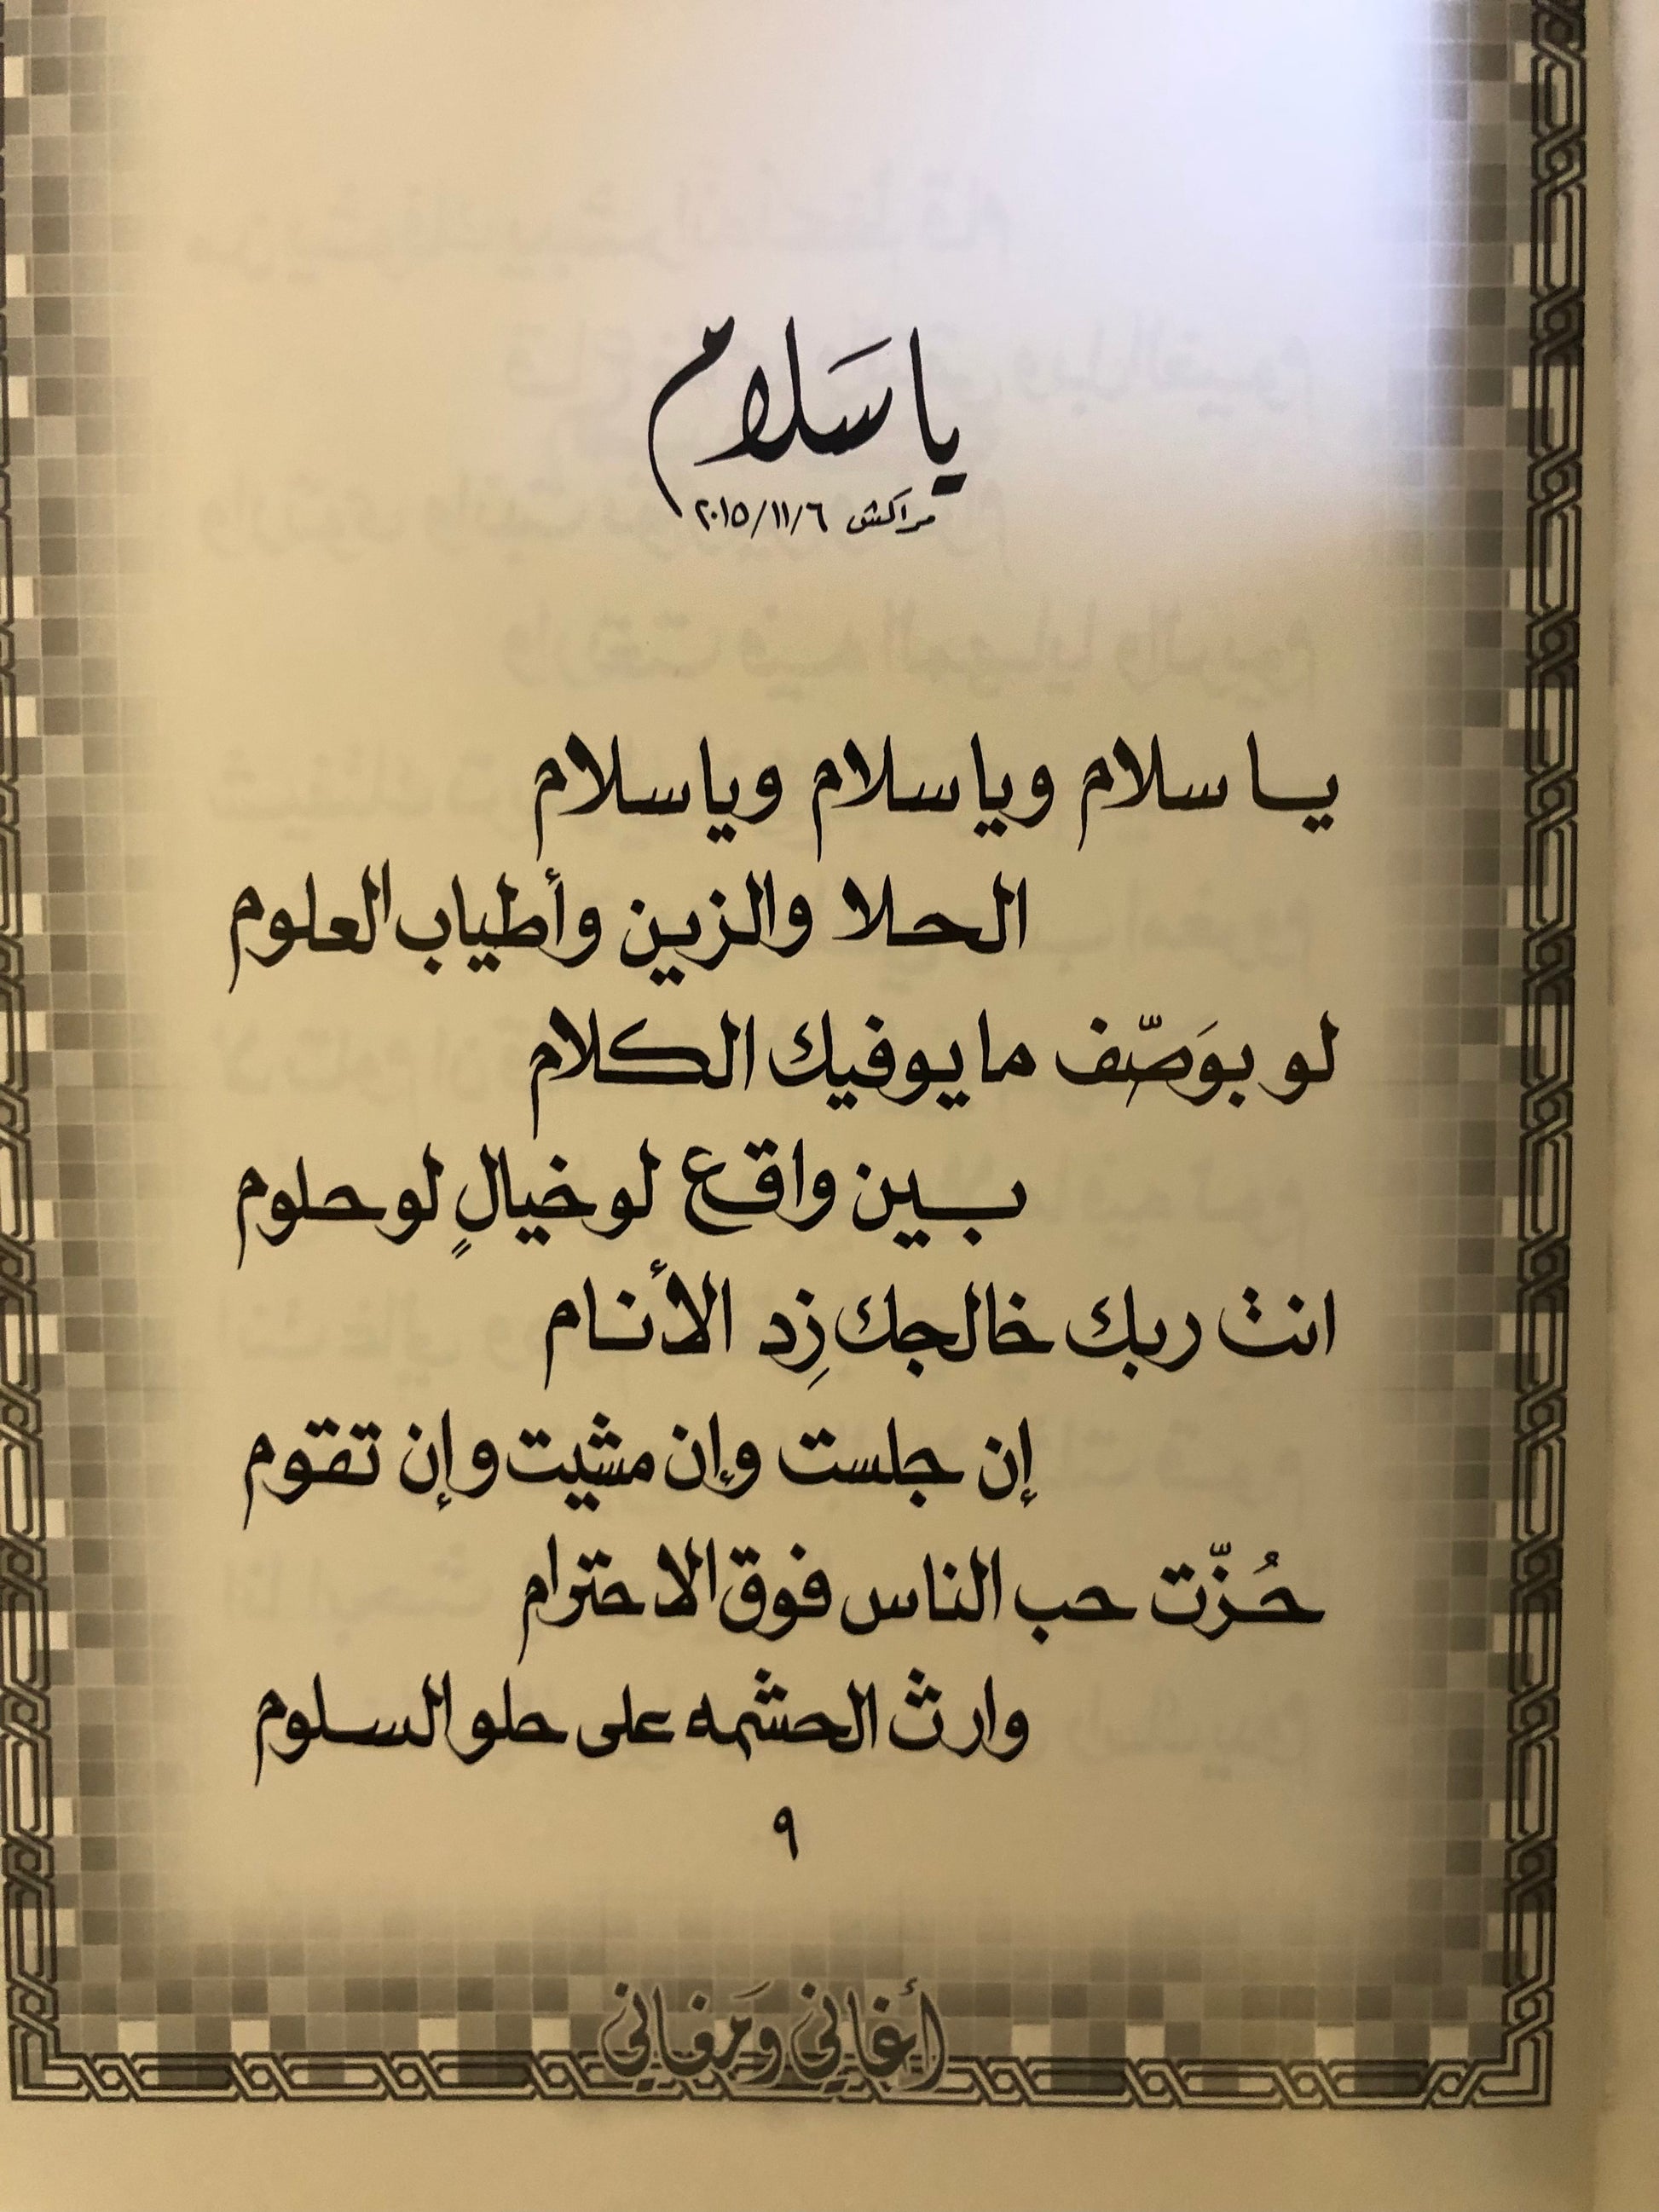 يا سَلام
مراكش ٢٠١٥/١١/٦
يا سلام ويا سلام ويا سلام
الحلا والزين وأطياب العلوم
لو بوَصّف ما يوفيك الكلام
بين واقع لو خيالٍ لو حلوم
انت ربك خالجك زِد الأنام
إن جلست وإن مشيت وإن تقوم
حُزّت حب الناس فوق الاحترام
وارث الحشمه على حلو السلوم
٩
أغاني وَمغاني